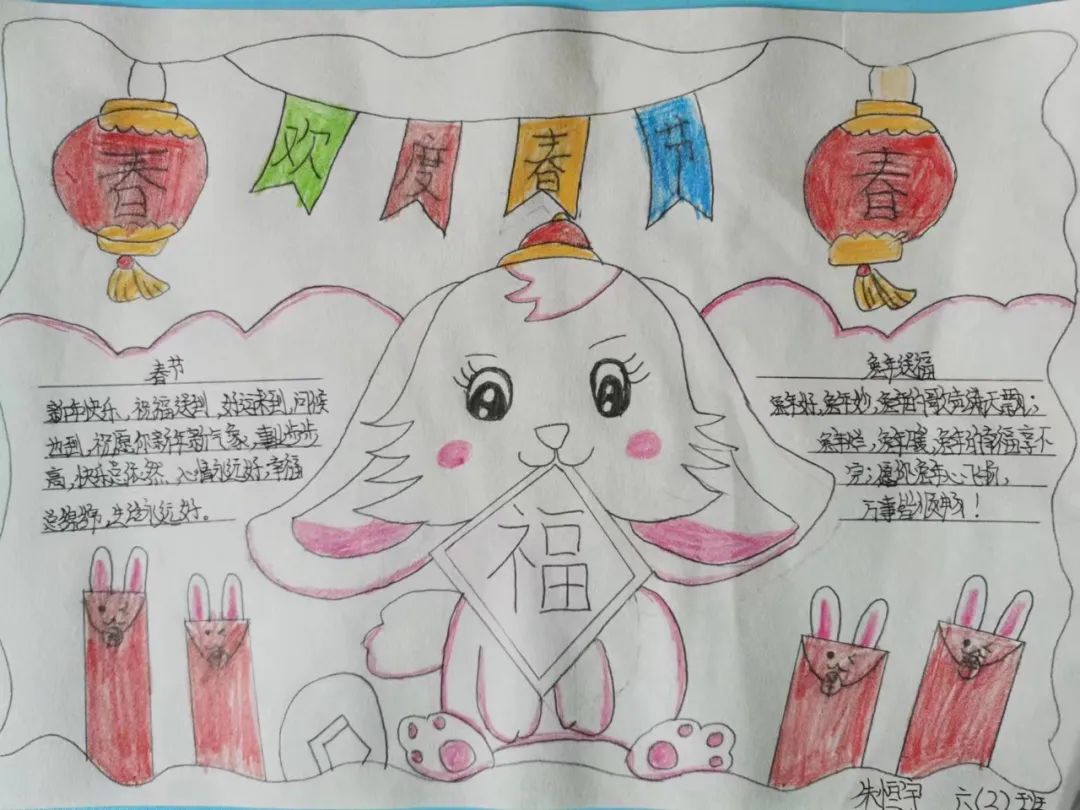 欢度春节
春
春
春节
新年快乐,祝福送到,好运来到,问候
也到,祝愿你新年新气象,事业步步
高,快乐总依然,心情永远好,幸福
总绵绵,生活永远好。
兔年送福
兔年好,兔年妙,兔年的歌声满天飘;
兔年烂,兔年暖,兔年的幸福享不
完;愿你兔年心飞扬,
万事皆顺畅!
福
朱恒宇
六(2)班